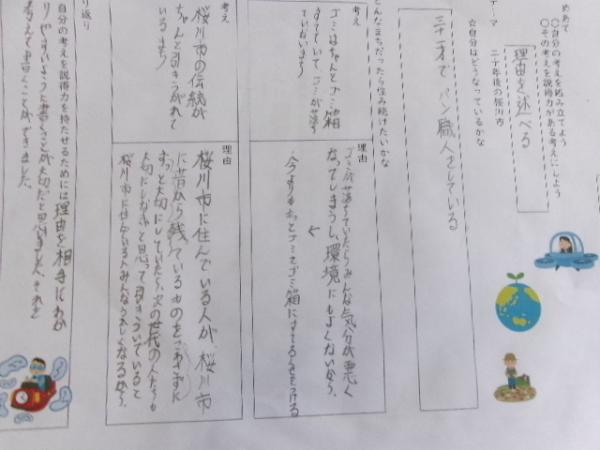 めあて
○自分の考えを組み立てよう
○その考えを説得力がある考えにしよう
理由を述べる
テーマ 二十年後の桜川市
☆自分はどうなっているかな
三十一才で パン職人をしている
どんなまちだったら住み続けたいかな
考え
ゴミはちゃんとゴミ箱
すてていて、ゴミが落ち
ていないまち
理由
ゴミが落ちていたらみんな気分が悪く
なってしまうし、環境にもよくないから。
今よりもっとゴミをゴミ箱にすてる人をつける
考え
桜川市の伝統が
ちゃんと引きつがれて
いるまち
理由
桜川市に住んでいる人が、桜川市
に昔から残っているものをこわさずに
ずっと大切にしていたら、次の世代の人たちも
大切にしなきゃと思って引きついでいると
桜川市に住んでいる人みんながうれしくなるから。
振り返り
自分の考えを説得力を持たせるためには理由を相手にわか
りやすいように書くことが大切だと思いました。それを
考えて書くことができました。